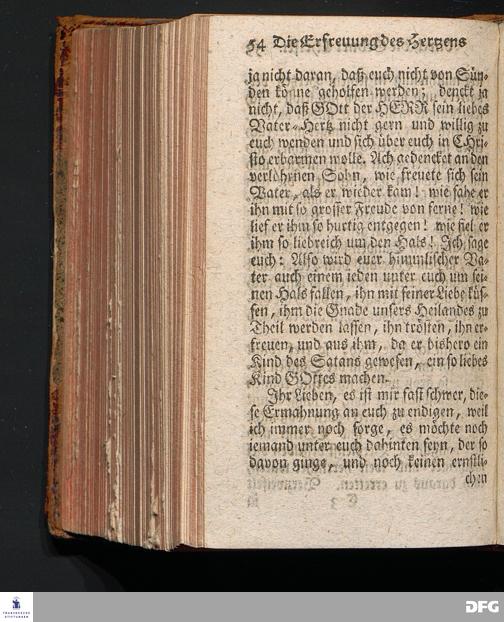 54 Die Erfreuung des Hertzens
ja nicht daran, daß euch nicht von Sün-
den könne geholfen werden; denckt ja
nicht, daß GOtt der HERR sein liebes
Vater-Hertz nicht gern und willig zu
euch wenden und sich über euch in CHri-
sto erbarmen wolle. Ach gedencket an den
verlohrnen Sohn, wie freuete sich sein
Vater, als er wieder kam! wie sahe er
ihn mit so grosser Freude von ferne! wie
lief er ihm so hurtig entgegen! wie fiel er
ihm so liebreich um den Hals! Ich sage
euch: Also wird euer himmlischer Va-
ter auch einem ieden unter euch um sei-
nen Hals fallen, ihn mit seiner Liebe küs-
sen, ihm die Gnade unsers Heilandes zu
Theil werden lassen, ihn trösten, ihn er-
freuen, und aus ihm, da er bishero ein
Kind des Satans gewesen, ein so liebes
Kind GOttes machen.
Ihr Lieben, es ist mir fast schwer, die-
se Ermahnung an euch zu endigen, weil
ich immer noch sorge, es möchte noch
iemand unter euch dahinten seyn, der so
davon ginge, und noch keinen ernstli-
chen
FRANCKESCHE
STIFTUNGEN
DFG